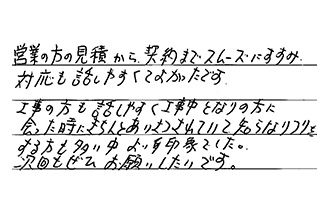 営業の方の見積から、契約までスムーズにすすみ
対応も話しやすくてよかったです。
工事の方も話しやすく工事中となりの方に
会った時にきちんとあいさつされていて知らないフリを
する方も多い中 より印象でした。
次回もぜひお願いしたいです。